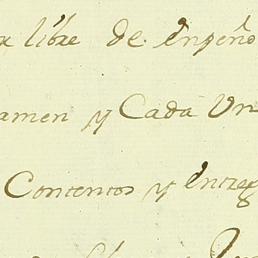 libre de enpeño
amen y Cada Un
Contentos y entreg